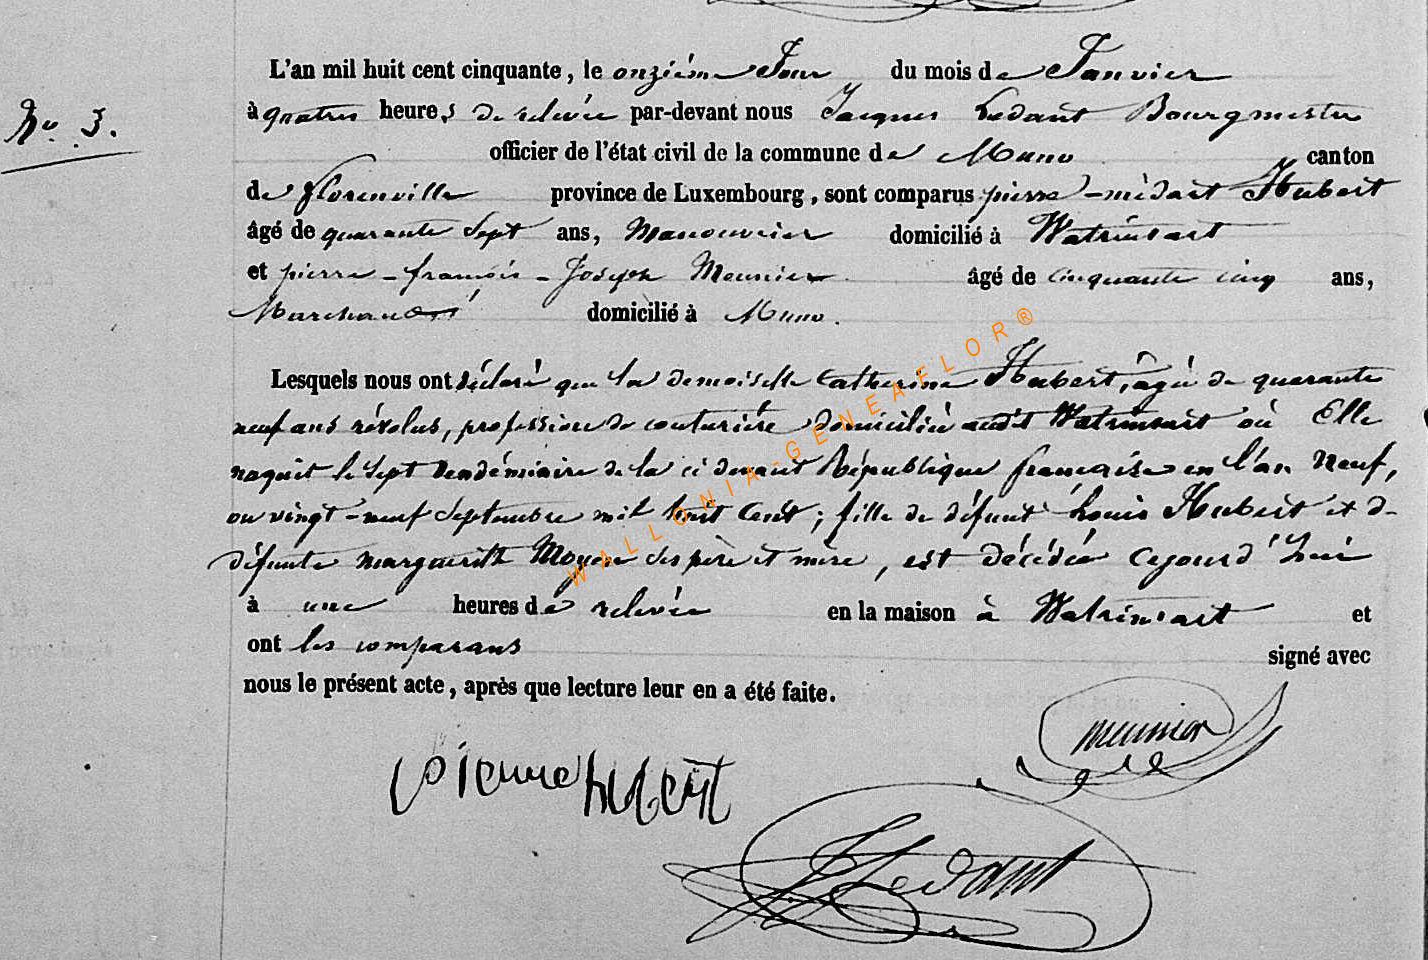 L'an mil huit cent cinquante, le onziéme Jour du mois de Janvier
No. 3.
à quatres heures de relevée par-devant nous Jacques Ledant Bourgmestre
officier de l'état civil de la commune de Muno canton
de florenville province de Luxembourg, sont comparus pierre-médart Hubert
âgé de quarante sept ans, Manouvrier domicilié à Watrinsart
et pierre-françois-Joseph Meunier âgé de cinquante cinq ans,
Marchand domicilié à Muno.
Lesquels nous ont déclaré que la demoiselle Catherine Hubert, âgée de quarante
neuf ans révolus, profession de couturière domiciliée audit Watrinsart où Elle
naquit le sept Vendémiaire de la ci devant République française en l'an neuf,
ou vingt-neuf Septembre mil huit Cent; fille de défunt Louis Hubert et de
défunte marguerith Moyen ses père et mère, est décédée cejourd'hui
à une heures de relevée en la maison à Watrinsart et
ont les comparans signé avec
nous le présent acte, après que lecture leur en a été faite.
meunier
pierre hubert
JLedant
WALLONIA-GENEAFLOR®